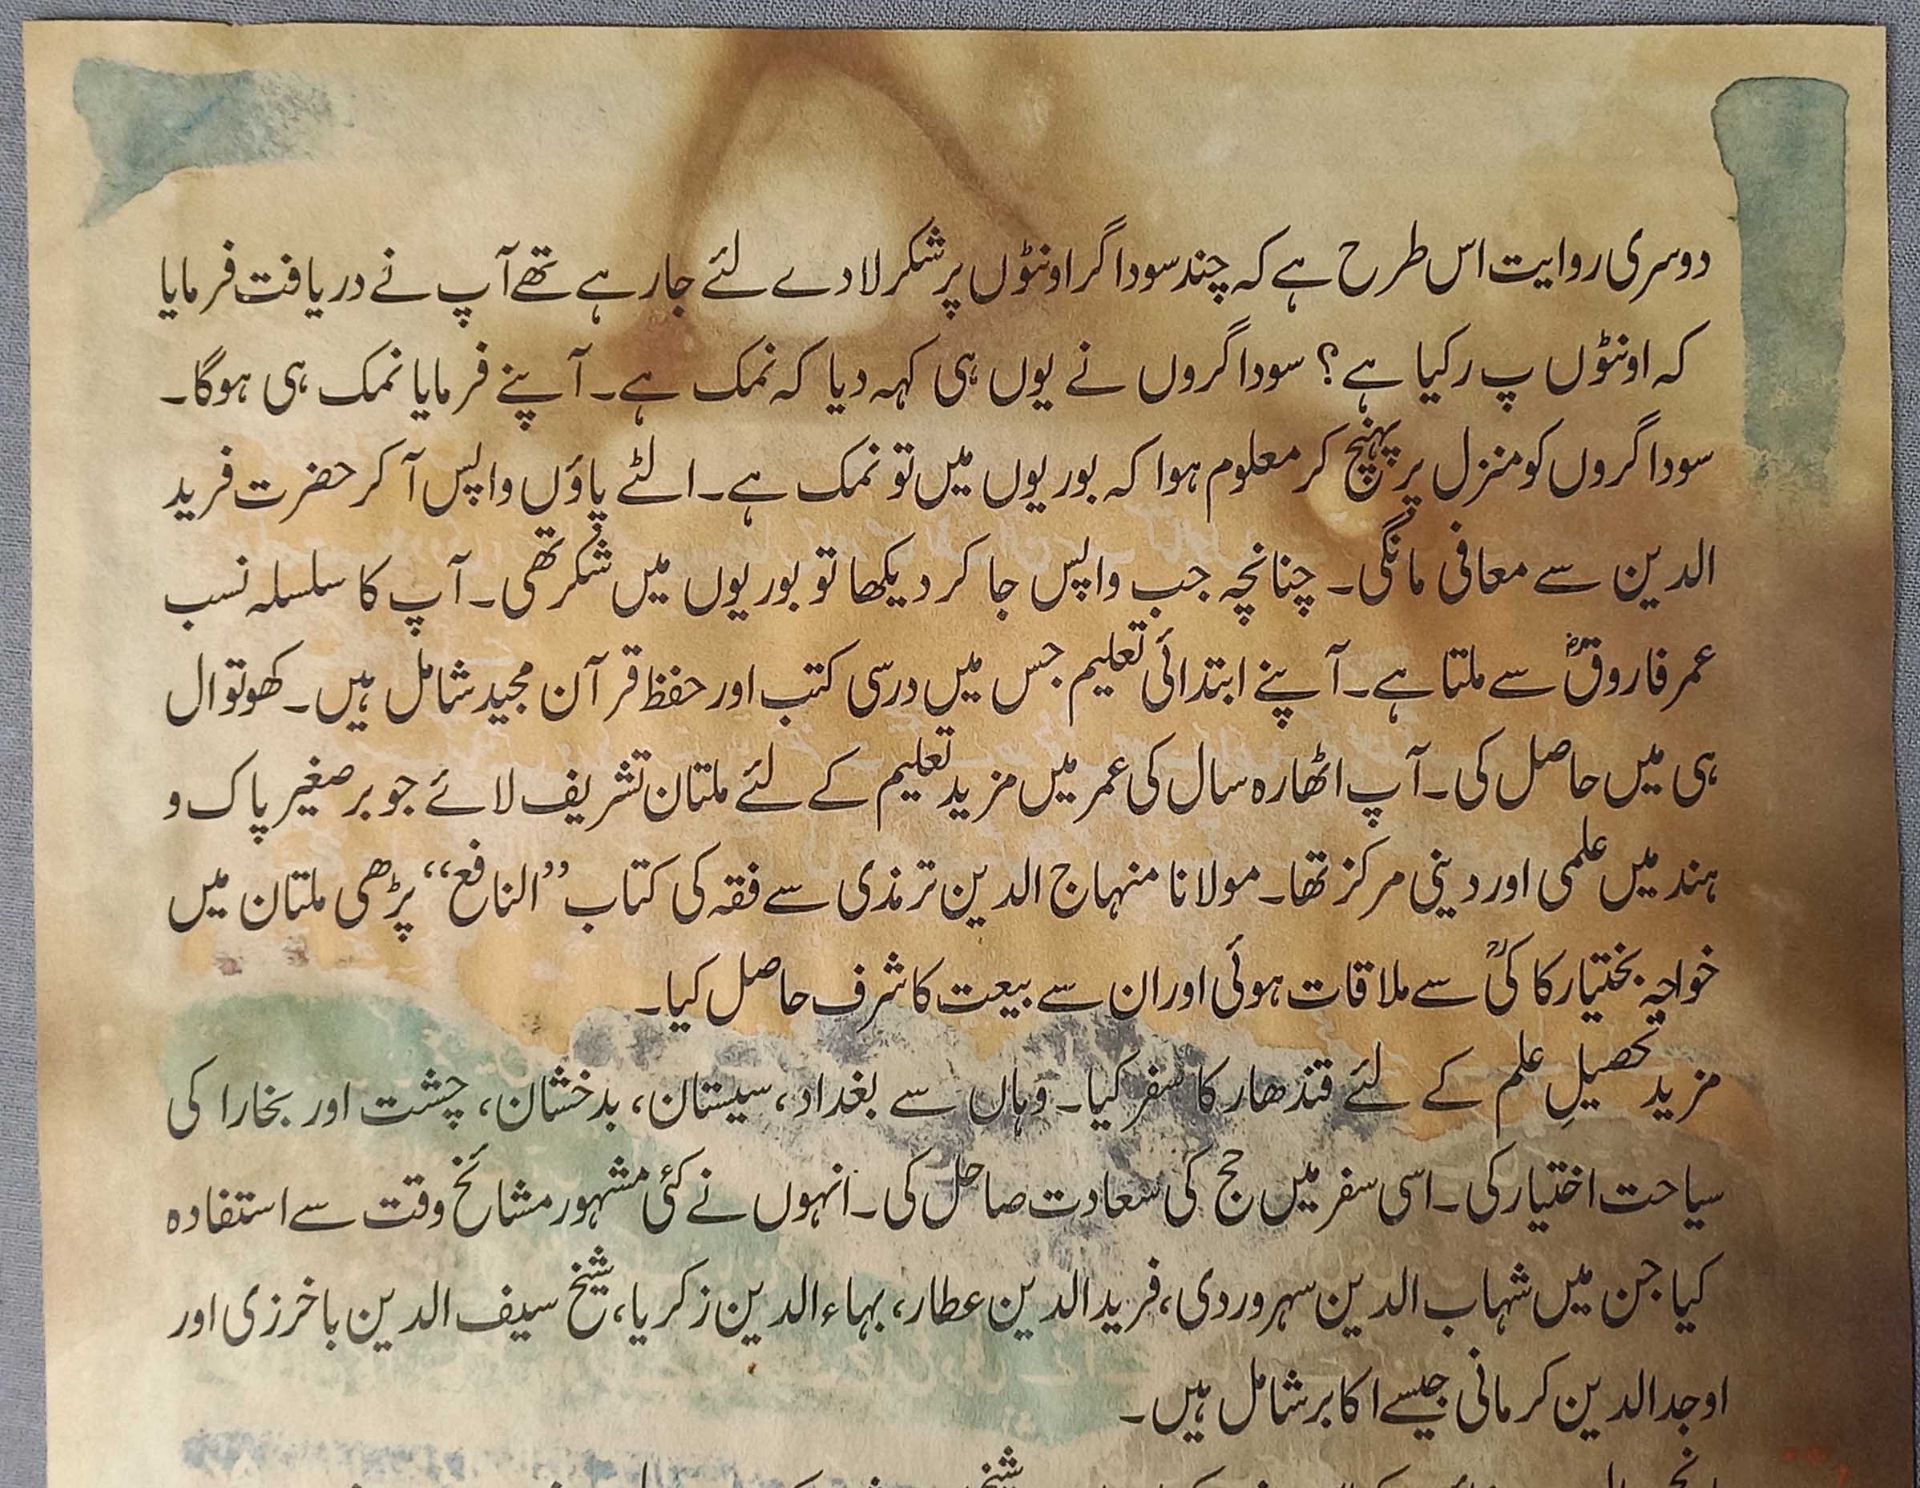 دوسری روایت اس طرح ہے کہ چند سوداگر اونٹوں پر شکر لادے لئے جا رہے تھے آپ نے دریافت فرمایا
کہ اونٹوں پر کیا ہے؟ سوداگروں نے یوں ہی کہہ دیا کہ نمک ہے۔ آپنے فرمایا نمک ہی ہوگا۔
سوداگروں کو منزل پر پہنچ کر معلوم ہوا کہ بوریوں میں تو نمک ہے۔ الٹے پاؤں واپس آ کر حضرت فرید
الدین سے معافی مانگی۔ چنانچہ جب واپس جا کر دیکھا تو بوریوں میں شکر تھی۔ آپ کا سلسلہ نسب
عمر فاروقؓ سے ملتا ہے۔ آپنے ابتدائی تعلیم جس میں درسی کتب اور حفظ قرآن مجید شامل ہیں۔ کھوتوال
ہی میں حاصل کی۔ آپ اٹھارہ سال کی عمر میں مزید تعلیم کے لئے ملتان تشریف لائے جو برصغیر پاک و
ہند میں علمی اور دینی مرکز تھا۔ مولانا منہاج الدین ترمذی سے فقہ کی کتاب ”النافع“ پڑھی ملتان میں
خواجہ بختیار کاکیؒ سے ملاقات ہوئی اور ان سے بیعت کا شرف حاصل کیا۔
مزید تحصیلِ علم کے لئے قندھار کا سفر کیا۔ وہاں سے بغداد، سیستان، بدخشان، چشت اور بخارا کی
سیاحت اختیار کی۔ اسی سفر میں حج کی سعادت صاحل کی۔ انہوں نے کئی مشہور مشائخ وقت سے استفادہ
کیا جن میں شہاب الدین سہروردی، فرید الدین عطار، بہاء الدین زکریا، شیخ سیف الدین باخرزی اور
اوجد الدین کرمانی جیسے اکابر شامل ہیں۔